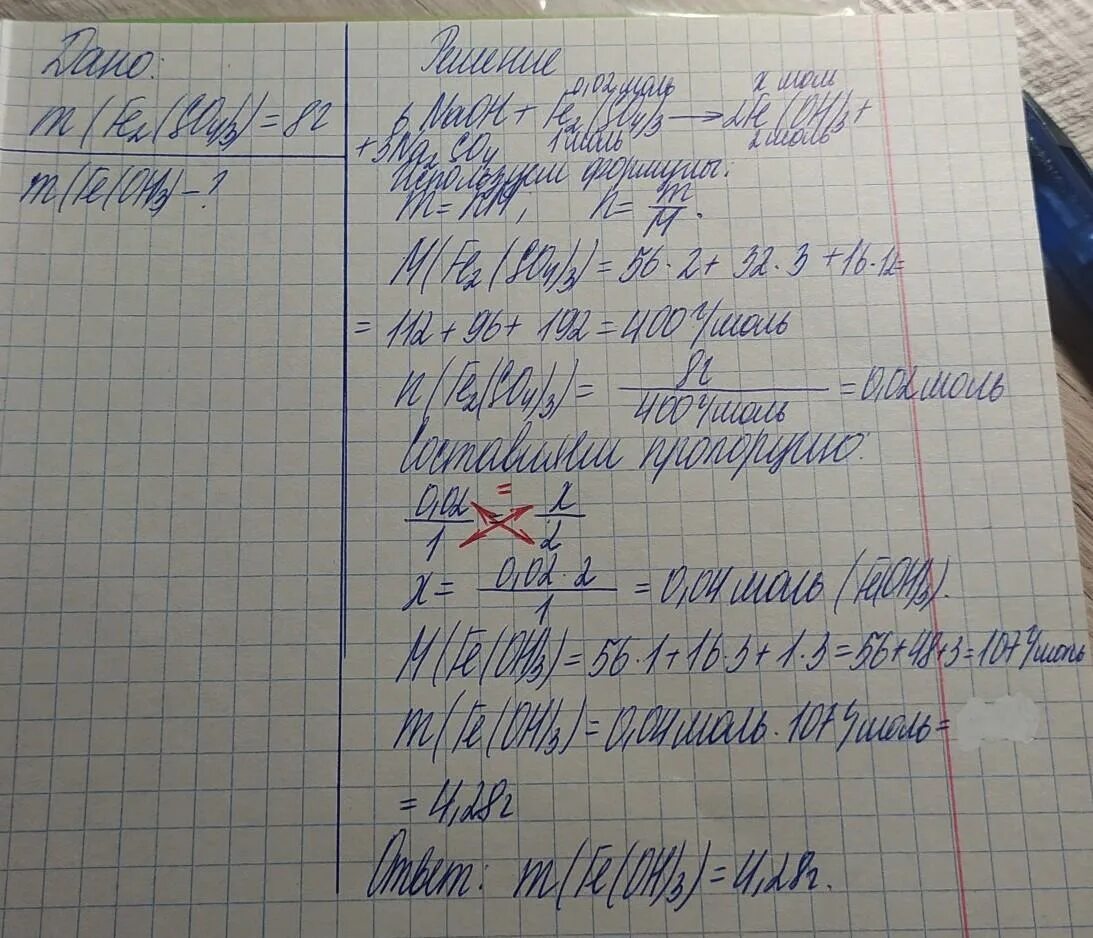 Дано:
m(Fe₂(SO₄)₃)=8г
m(Fe(OH)₃)-?
Решение
0,02 моль x моль
6 NaOH + Fe₂(SO₄)₃ → 2Fe(OH)₃ +
1 моль 2 моль
+3Na₂SO₄
Используем формулы:
m=nM, n=m/M.
M(Fe₂(SO₄)₃)=56·2+32·3+16·12=
=112+96+192=400 г/моль
n(Fe₂(SO₄)₃)= 8г/400г/моль =0,02 моль
Составляем пропорцию:
0,02/1 = x/2
x= 0,02·2/1 =0,04 моль (Fe(OH)₃).
M(Fe(OH)₃)=56·1+16·3+1·3=56+48+3=107 г/моль
m(Fe(OH)₃)=0,04 моль·107 г/моль=
=4,28г
Ответ: m(Fe(OH)₃)=4,28г.